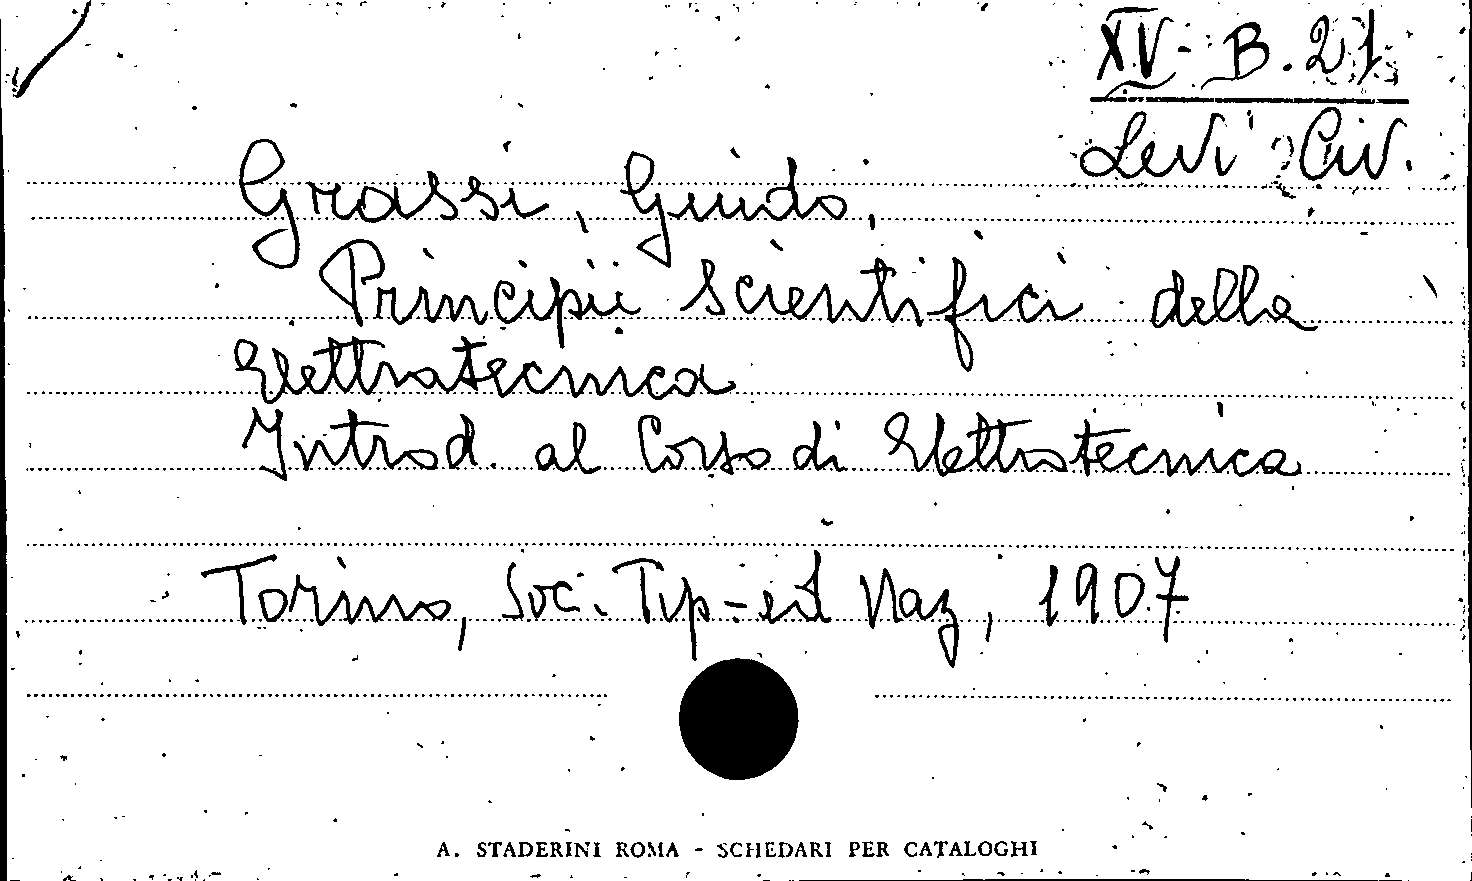 XV- B. 21
Levi Civ.
Grassi, Guido,
Principii scientifici della
Elettrotecnica
Introd. al Corso di Elettrotecnica
Torino, Soc. Tip-ed Naz, 1907
A. STADERINI ROMA - SCHEDARI PER CATALOGHI